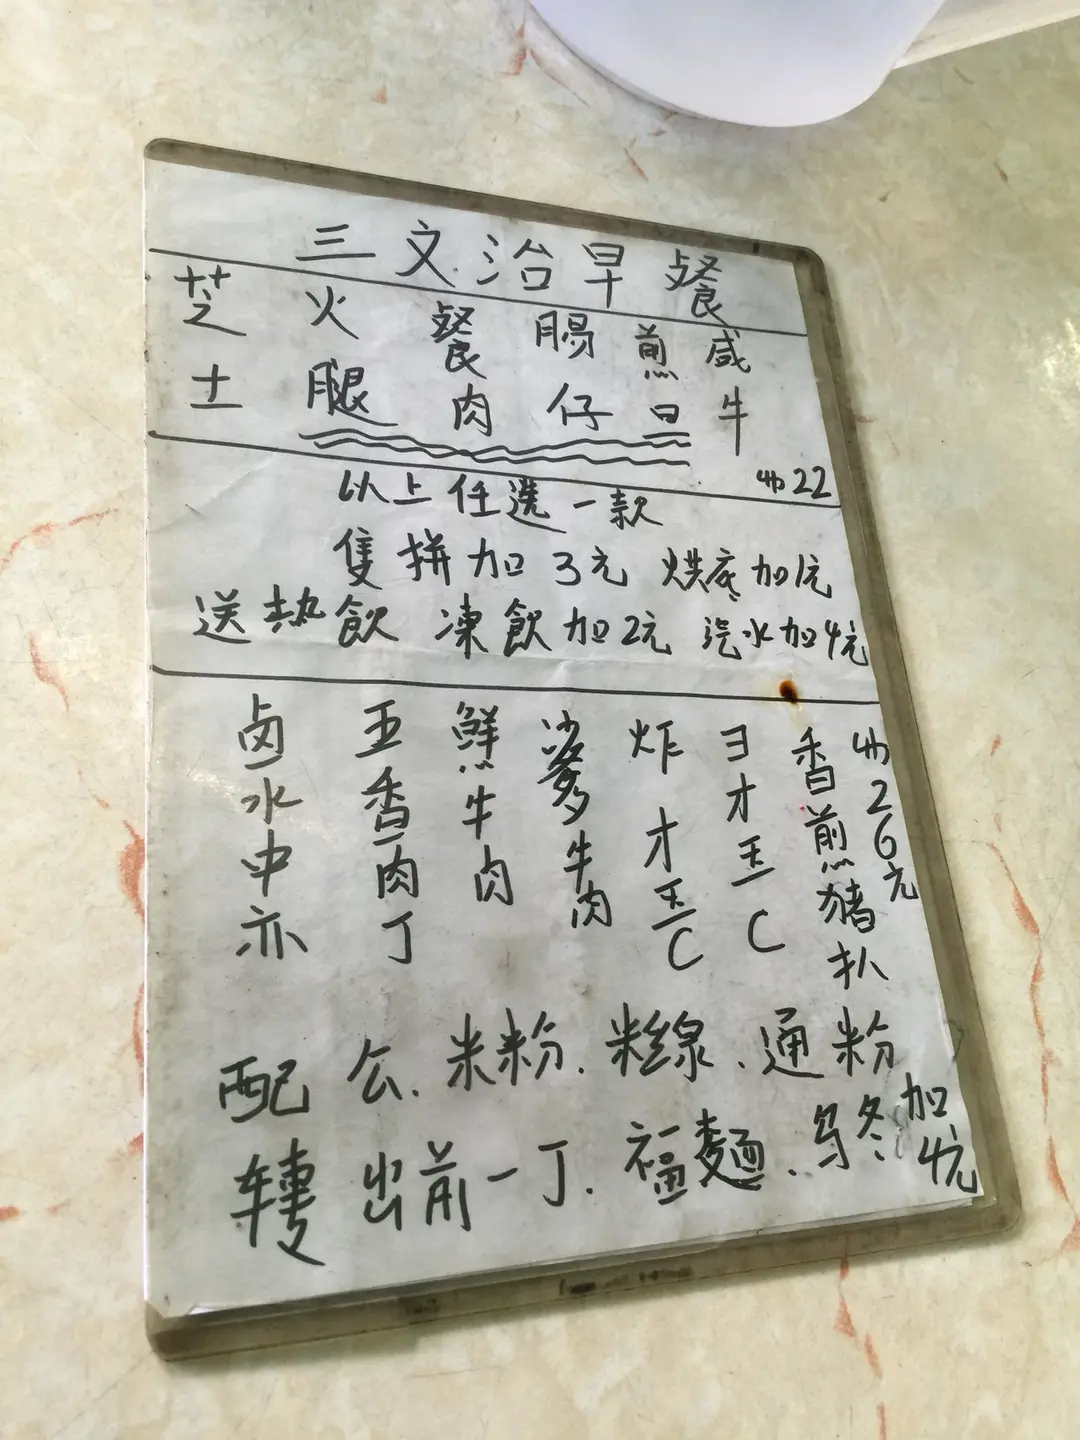 三文治早餐
芝士 火腿 餐肉 腸仔 煎旦 咸牛
22
以上任選一款
隻拼加3元 烘底加1元
送热飲 凍飲加2元 汽水加4元
卤水中亦
五香肉丁
鮮牛肉
沙爹牛肉
炸才王C
ヨ才王C
香煎猪扒
26元
配 公.米粉.米線.通粉
轉 出前一丁.福麵.乌冬加4元